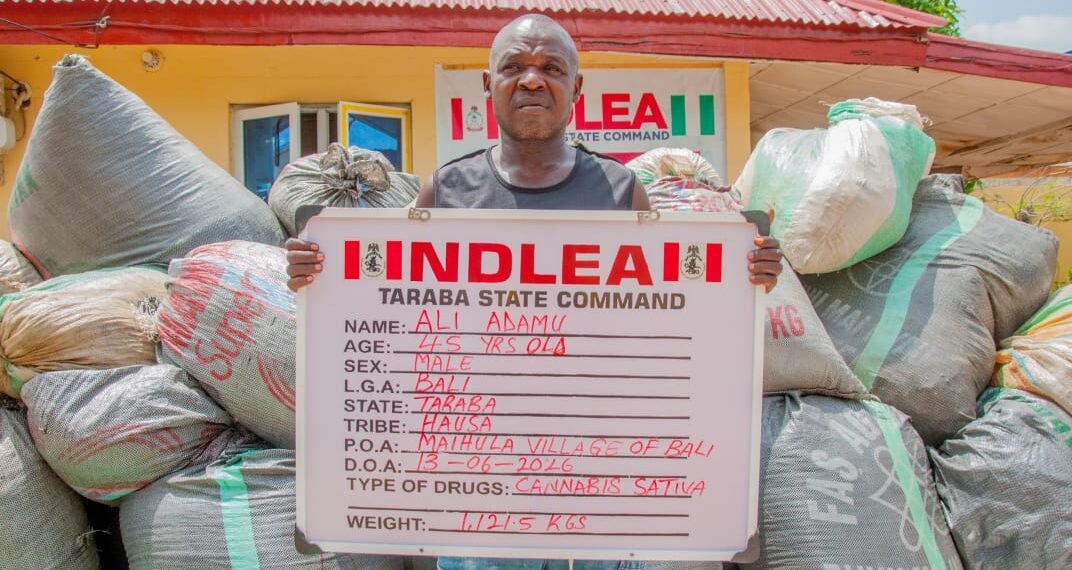 NDLEA
STATE COMMAND
NDLEA
TARABA STATE COMMAND
NAME: ALI ADAMU
AGE: 45 YRS OLD
SEX: MALE
L.G.A: BALI
STATE: TARABA
TRIBE: HAUSA
P.O.A: MAIHULA VILLAGE OF BALI
D.O.A: 13-06-2026
TYPE OF DRUGS: CANNABIS SATIVA
WEIGHT: 1,121.5 KGS
Super
KG
FAS